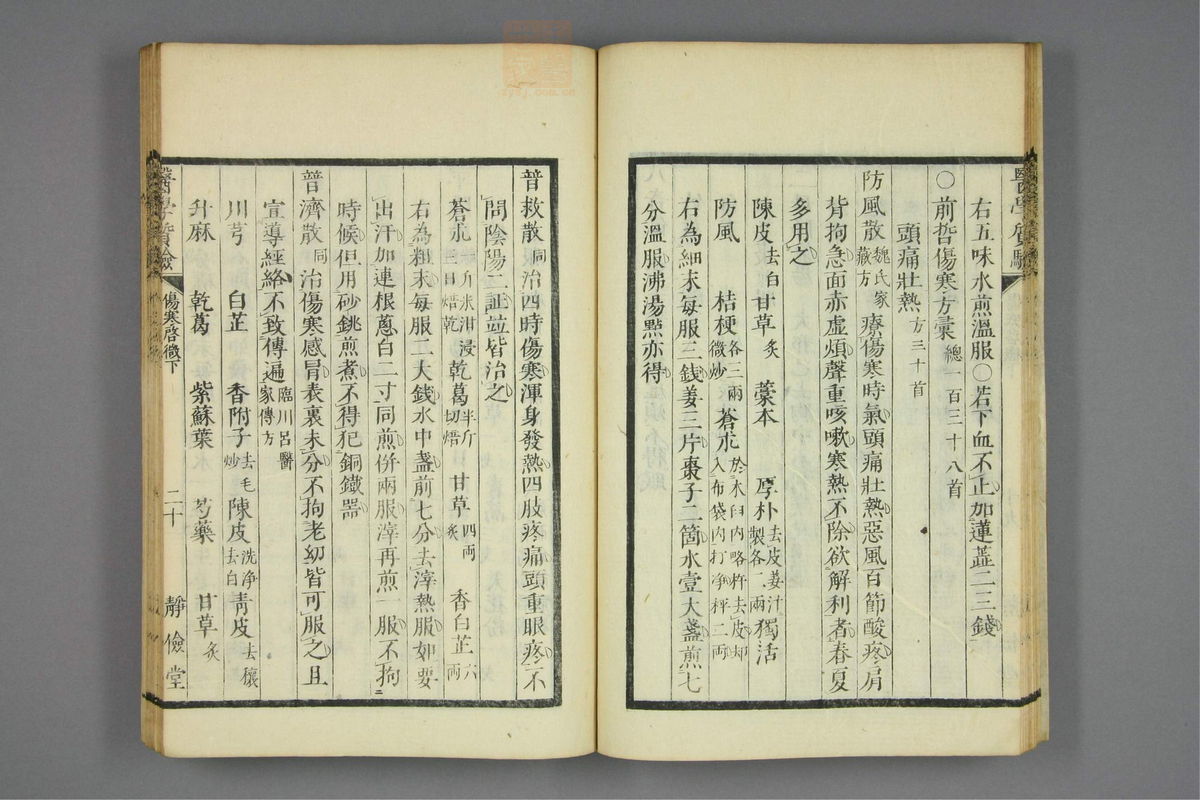 右五味水煎溫服○若下血不止加蓮蕋二三錢
○前哲傷寒方彙總一百三十八首
頭痛壯熱方三十首
防風散魏氏家藏方療傷寒時氣頭痛壯熱惡風百節酸疼肩
背拘急面赤虛煩聲重咳嗽寒熱不除欲解利者春夏
多用之
陳皮去白甘草炙藁本厚朴去皮姜汁製各二兩獨活
防風桔梗各三兩微炒蒼朮於木臼內略杵去皮却入布袋內打淨秤二兩
右為細末每服三錢姜三片棗子二箇水壹大盞煎七
分溫服沸湯點亦得
普救散同治四時傷寒渾身發熱四肢疼痛頭重眼疼不
問陰陽二証並皆治之
蒼朮一斤米泔浸四日焙乾乾葛半斤切焙甘草四兩炙香白芷六兩
右為粗末每服二大錢水中盞前七分去滓熱服如要
出汗加連根蔥白二寸同煎併兩服滓再煎一服不拘
時候但用砂銚煎煮不得犯銅鐵器
普濟散同治傷寒感冒表裏未分不拘老幼皆可服之且
宣導經絡不致傳遍臨川呂醫家傳方
川芎白芷香附子去毛炒陳皮洗淨去白青皮去穰
升麻乾葛紫蘇葉芍藥甘草炙
傷寒啓微下
二十
靜儉堂